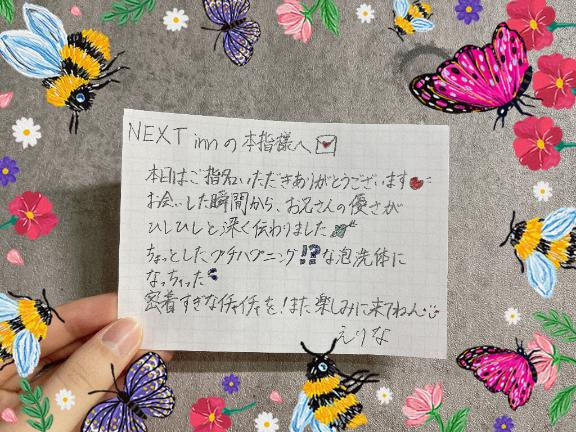 NEXT innの本指様へ
本日はご指名いただきありがとうございます
お会いした瞬間から、お兄さんの優さが
ひしひしと深く伝わりました
ちょっとしたプチハプニング!?な泡洗体に
なっちゃった
密着すぎなイチャイチャを!また楽しみに来てねん
えりな